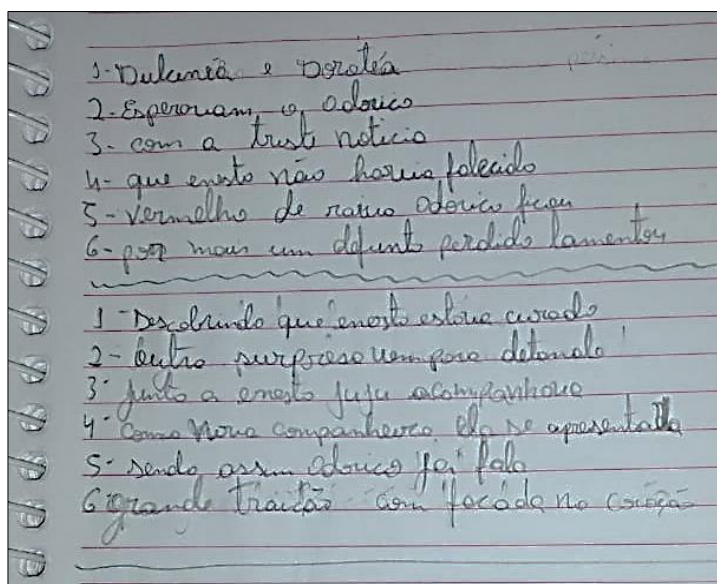 1-Dulcineia e Dorotéa
2-Esperavam o Odorico
3- com a triste noticia
4- que enesto não havia falecido
5-vermelho de raiva Odorico ficou
6-por mais um defunto perdido lamentou
1-Descobrindo que enesto estava curado
2- Outra surpresa vem para detonalo
3- junto a enesto juju acompanhava
4- Como nova companheira ela se apresentava
5- sendo assim Odorico já fala
6 grande traição com facada no coração